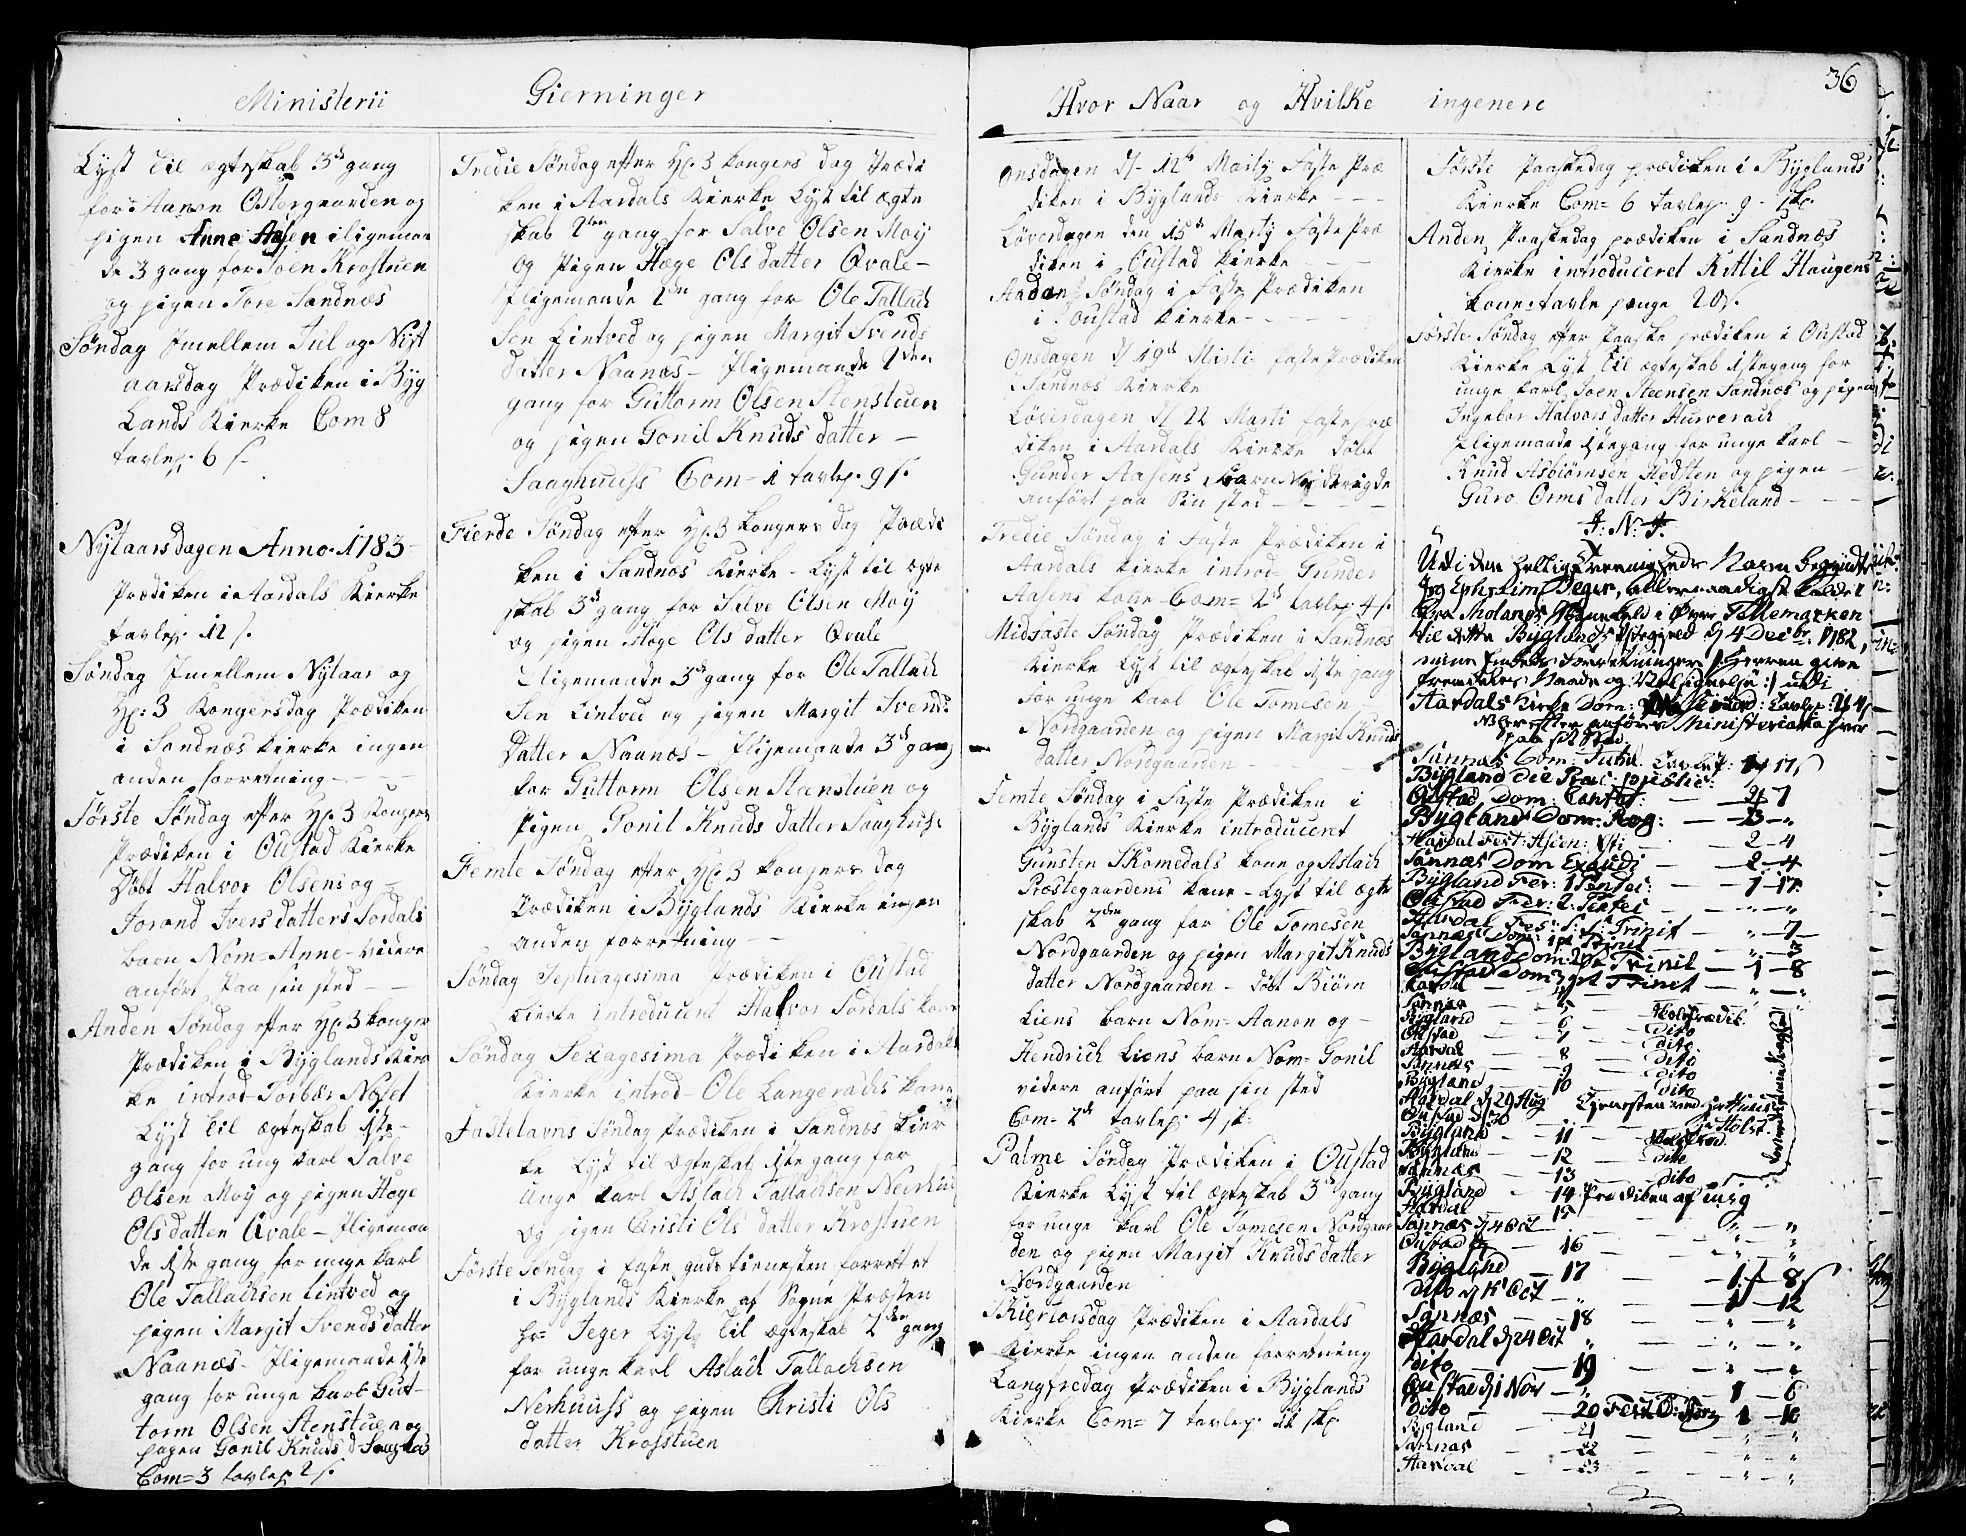 Ministerii Gierninger
Lyst til ægteskab 3de gang
for Aanon Ostergaarden og
pigen Anne Aasen iligemaa
de 3 gang for Joen Krostuen
og pigen Tore Sandnæs
Søndag Imellem Jul og Nyt
aarsdag Prædiken i Byg
Lands Kierke Com 8
tavlep. 6 s.
Nytaarsdagen Anno. 1783
Prædiken i Aardals Kierke
tavlep. 12 s.
Søndag Imellem Nytaar og
Hl: 3 Kongersdag Prædiken
i Sandnæs Kierke ingen
anden forretning
Første Søndag efter Hl. 3 Konger
Prædiken i Oustad Kierke
Døbt Halvor Olsens og
Jorand Ivers datters Sordals
barn Nom= Anne - videre
anført Paa sin sted
Anden Søndag efter Hl. 3 konger
Prædiken i Byglands Kier
ke introd Torbør Noset
Lyst til ægteskab 1ste
gang for ung karl Salve
Olsen Moy og pigen Hæge
Ols datter Qvale - Iligemaa
de 1ste gang for unge karl
Ole Tallachsen Lintved og
pigen Margit Svends datter
Naanæs - Iligemaade 1ste
gang for unge karl Gut-
torm Olsen Stenstuen og
pigen Gonil Knuds d
Com= 3 tavlep 2 s.
Tredie Søndag efter Hl. 3 kongers dag Prædi
ken i Aardals Kierke Lyst til ægte
skab 2den gang for Salve Olsen Moy
og Pigen Hæge Ols datter Qvale -
Iligemaade 2den gang for Ole Tallach
Sen Lintved og pigen Margit Svends
datter Naanæs - Iligemaade 2den
gang for Guttorm Olsen Stenstuen
og pigen Gonil Knuds datter -
Saaghuuss Com= 1 tavlep. 9 s.
Fierde Søndag efter Hl. 3 kongers dag Prædi
ken i Sandnæs Kierke - Lyst til ægte
skab 3de gang for Salve Olsen Moy
og pigen Hæge Ols datter Qvale
Iligemaade 3de gang for Ole Tallach
Sen Lintved og pigen Margit Svends
Datter Naanæs - Iligemaade 3de gang
for Guttorm Olsen Stenstuen og
Pigen Gonil Knuds datter Saaghuss
Femte Søndag efter Hl. 3 kongers dag
Prædiken i Byglands Kierke ingen
anden forretning
Søndag Septuagesima Prædiken i Oustad
Kierke introduceret Halvor Sordals kone
Søndag Sexagesima Prædiken i Aardals
Kierke introd- Ole Langerachs kone
Fastelavns Søndag Prædiken i Sandnæs Kier
ke Lyst til ægteskab 1ste gang for
unge karl Aslach Tallachsen Nerhuus
og pigen Christi Ols datter Krostuen
Første Søndag i faste guds tienesten forrettet
i Byglands Kierke af Sogne Præsten
Hr= Jeger Lyst til ægteskab 2den gang
for unge karl Aslach Tallachsen
Nerhuuss og pigen Christi Ols
datter Krosstuen
Hvor Naar og Hvilke ingenere
36
Onsdagen d/ 12te Martij Faste Præ
diken i Byglands Kierke
Løverdagen den 15de Martij Faste Præ
diken i Oustad Kierke
Anden Søndag i Faste Prædiken
i Oustad Kierke
Onsdagen d/ 19de Marti faste Prædiken
i Sandnæs Kierke
Løverdagen d/ 22 Marti faste præ
diken i Aardals Kierke Døbt
Gunder Aasens barn
anført paa Sin sted
Tredie Søndag i Faste Prædiken i
Aardals Kierke introd= Gunder
Aasens kone Com= 2de tavlep 4 s.
Midfaste Søndag Prædiken i Sandnæs
Kierke Lyst til ægteskab 1ste gang
for unge karl Ole Tomesen
Nordgaarden og pigen Margit Knuds
datter Nordgaarden
Femte Søndag i Faste Prædiken i
Byglands Kierke introduceret
Gunsten Skomedals kone og Aslach
Præstegaardens kone - Lyst til ægte
skab 2den gang for Ole Tomesen
Nordgaarden og pigen Margit Knuds
datter Nordgaarden - Døbt Biørn
Liens barn Nom= Aanon og
Hendrich Liens barn Nom= Gonil
videre anført paa sin sted
Com= 2de tavlep 4 sk=
Palme Søndag Prædiken i Oustad
Kierke Lyst til ægteskab 3de gang
for unge karl Ole Tomesen Nordgaar
den og pigen Margit Knuds datter
Nordgaarden
Skiertorsdag Prædiken i Aardals
Kierke ingen anden forretning
Langfredag Prædiken i Byglands
Kierke Com= 7 tavlep. 12 skp.
Første Paaskedag prædiken i Byglands
Kierke Com= 6 tavlep. 9 - skp.
Anden Paaskedag prædiken i Sandnæs
Kierke introduceret Kittil Haugens
kone: tavle penge 20 s.
Første Søndag efter Paaske prædiken i Oustad
Kierke Lyst til ægteskab 1stegang for
unge karl Joen Steensen Sandnæs og pigen
Ingebor Halvors datter Hurverach
Iligemaade 1stegang for unge karl -
Knud Asbiørnsen Hedsten og pigen -
Guro Orms datter Birkeland
I: N: J.
Udi den hellig Treenigheds Navn begyndte
Jeg Ephraim Jeger, allernaadigst kaldet
fra Molands Sognekald i Øvre Tellemarken
til dette Byglands Præstegield d/ 4 Decbr: 1782,
mine Embeds Forretninger /: Herren give
fremdeles Naade og Velsignelse :/ udi
Aardals Kirke Dom: Tavlep: 4 s
Herefter anføres Ministerialia hver
paa sit Sted.
Sannæs Com: Jubil. Tavlep: 17 s
Bygland Die Prec: public:
Oustad Dom: Cantat: — 7
Bygland Dom: Rog: — 13 - "
Aardal Fest: Ascen: Xsti — 2 - 4
Sannæs Dom Exaudi — 2 - 4
Bygland Fer: 1 Pentec: — 1 - 17
Oustad Fer: 2. Pentec — " - "
Aardal Fes: S: S: Trinit — " - 7
Sannæs Dom: 1 pt Trinit
Bygland Dom: 2 pt Trinit — " - 3
Oustad Dom 3 pt Trinit — 1 - 8
Aardal — 4 — " - "
Sannæs — 5
Bygland — 6 —
Oustad — 7 — Dito
Aardal — 8 — Dito
Sannæs — 9 — Dito
Bygland — 10 — Dito
Aardal d 29 Aug Tjenesten
Oustad d 30 Holst
Bygland — 11
Bygland — 12 — dito
Sannæs — 13 — dito
Bygland — 14 Prædiken af mig
Aardal — 15
Sannæs d 4 Oct — " - "
Oustad — 16 — " - "
Bygland — 17 — 1 - 8 s
Dito d Oct — 1 - 12
Sannæs — 18 — " - "
Aardal d 24 Oct — " - "
Dito — 19 — " - "
Oustad d 1 Nov — 1 - 6
Dito — 20 Fest O: — 1 - 10
Bygland — 21 — " - "
Sannæs — 22 — " - "
Aardal — 23 — " - "